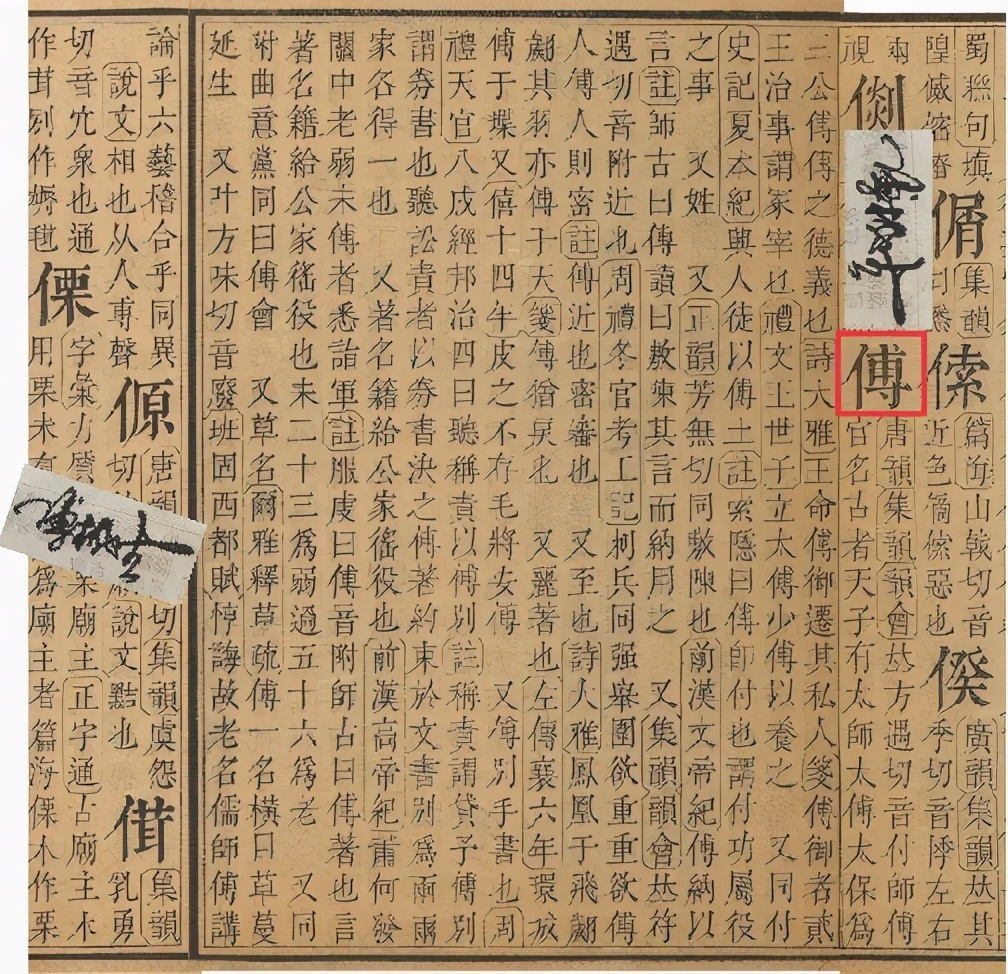 隍
句塡
集韻
篇海山戟切音
近色 惡也
廣韻集韻𠀤其
季切音悸左右
視
傅
唐韻集韻韻會𠀤方遇切音付師傅
官名古者天子有太師太傅太保爲
三公傅傅之德義也詩大雅王命傅御遷其私人箋傅御者貳
王治事謂冢宰也禮文王世子立太傅少傅以養之 又同付
史記夏本紀與人徒以傅土註索隱曰傅師付也謂付功屬役
之事 又姓 又正韻芳無切同敷陳也前漢文帝紀傅納以
言註師古曰傅讀曰敷陳其言而納用之 又集韻韻會𠀤符
遇切音附近也周禮冬官考工記柯兵同强舉圍欲重重欲傅
人傅人則密註傅近也密審也 又至也詩大雅鳳凰于飛翽
翽其羽亦傅于天箋傅猶戾也 又麗著也左傳襄六年環城
傅于堞又僖十四年皮之不存毛將安傅 又傅別手書也周
禮天官八成經邦治四曰聽稱責以傅別註稱責謂貸予傅別
謂券書也聽訟責者以券書決之傅著約束於文書別爲兩兩
家各得一也 又著名籍給公家徭役也前漢高帝紀蕭何發
關中老弱未傅者悉詣軍註服虔曰傅音附師古曰傅著也言
著名籍給公家徭役也未二十三爲弱過五十六爲老 又同
附曲意黨同曰傅會 又草名爾雅釋草疏傅一名橫目草蔓
延生 又叶方味切音廢班固西都賦惇誨故老名儒師傅講
論乎六藝稽合乎同異
說文相也从人尃聲
傆
唐韻
切集韻虞怨
切
說文黠也
傇
集韻
乳勇
切音宂衆也通
作茸
傈
字彙力
廟主正字通古廟主木
用栗木
爲廟主者篇海傈木作栗